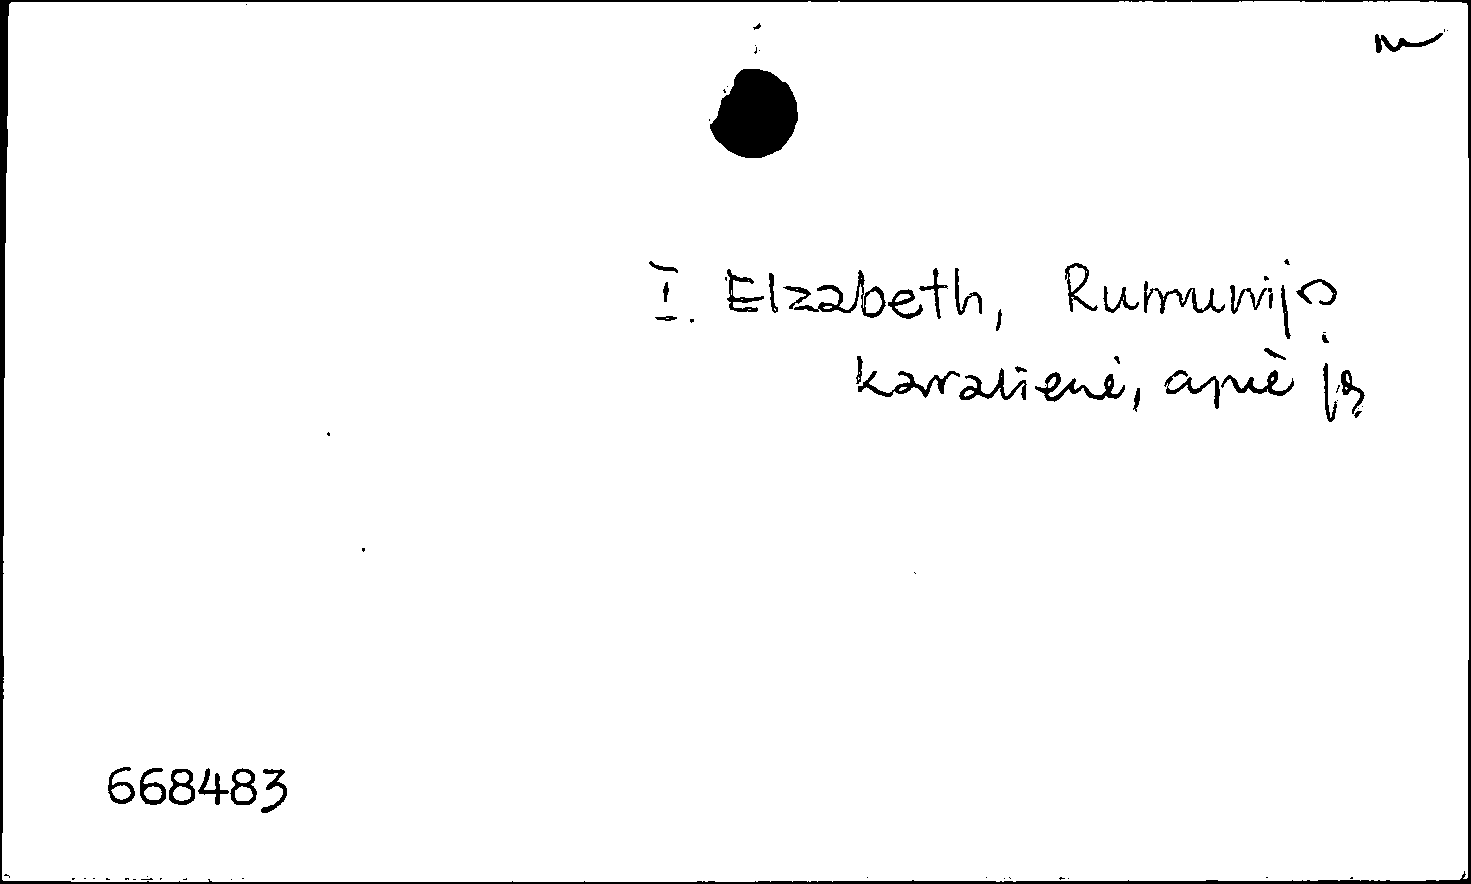 I. Elzabeth, Rumunijo
karalienė, apiė ją
668483